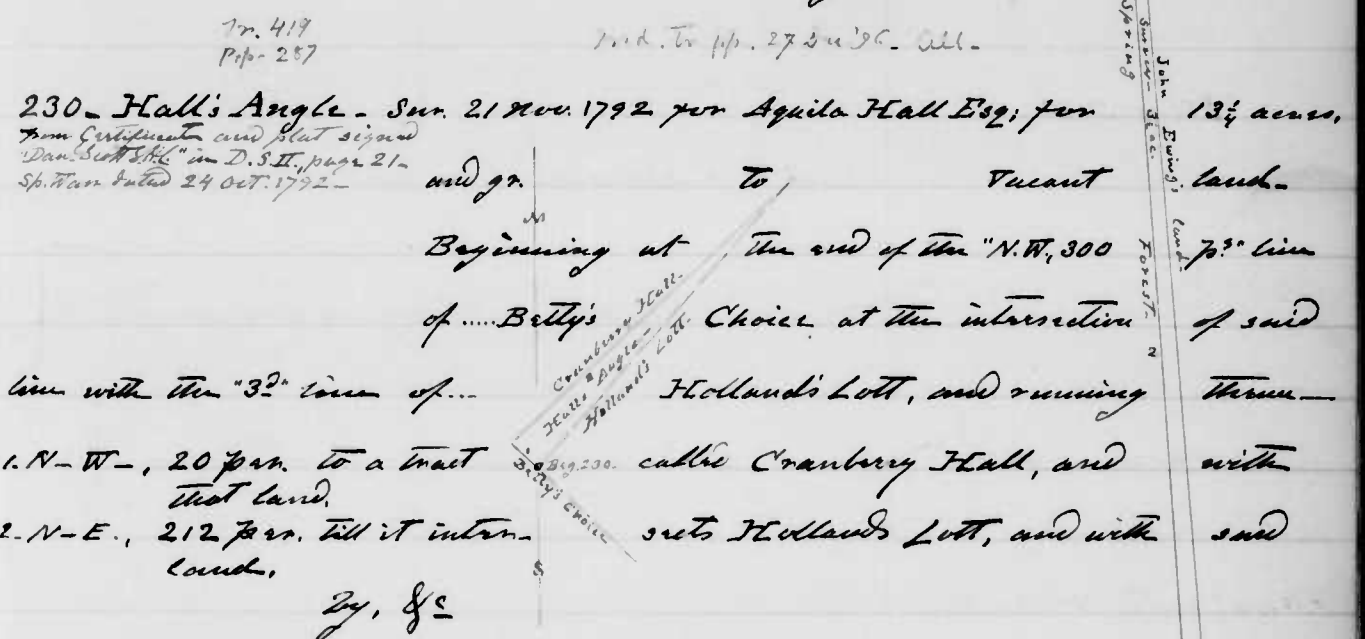 Tr. 419
Pip- 287
27 '96-
230- Hall's Angle- Sur. 21 Nov. 1792 for Aquila Hall Esq; for 13¼ acres.
from Certificate and plat signed
"Dan Scott in D.S.II., page 21-
Sp. War dated 24 Oct. 1792-
and gr. to, Vacant land-
Beginning at the end of the "N.W., 300 ps" line
of ..... Betty's Choice at the intersection of said
line with the "3d" line of... Holland's Lott, and running thence-
1. N-W-, 20 per. to a tract called Cranberry Hall, and with
that land.
2. N-E., 212 per. till it inter- sects Hollands Lott, and with said
land.
by, &c
N
Cranberry Hall.
Halls Angle-
Holland's Lott.
Beg. 230.
Betty's Choice
S
Spring
John Ewing's land.
Forest. 2